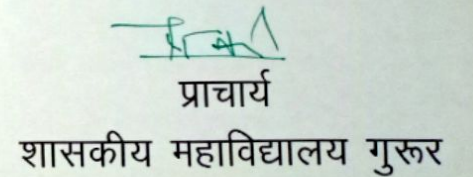 प्राचार्य
शासकीय महाविद्यालय गुरूर